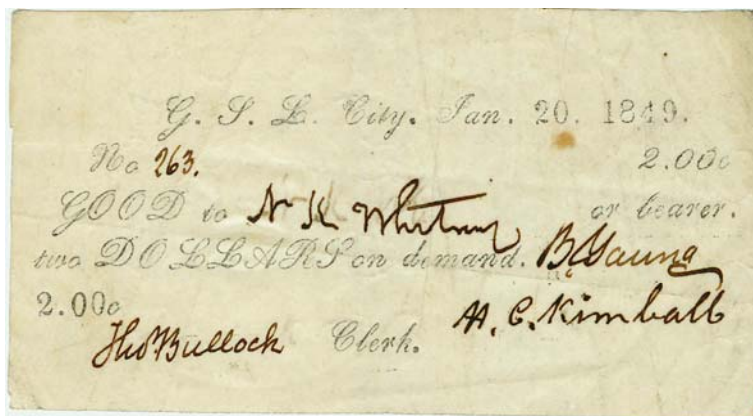 G. S. L. City. Jan. 20. 1849.
No 263. 2.00c
GOOD to N K Whitney or bearer.
two DOLLARS on demand. B. Young
2.00c H. C. Kimball
Tho Bullock Clerk.